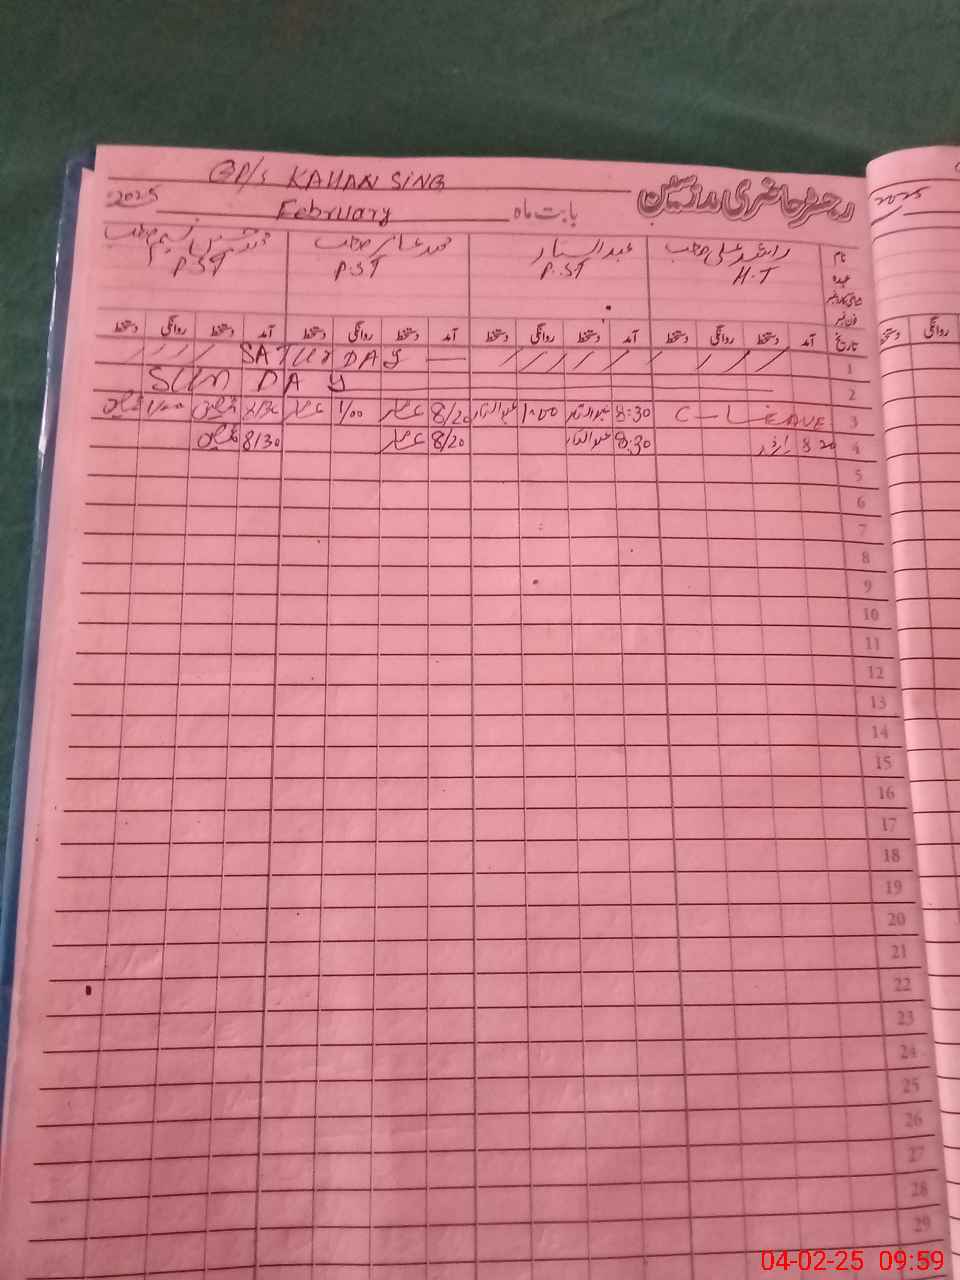 GP/s KAHAN SING
رجسٹر حاضری مدرسین
2025
بابت ماہ February
نام راشد علی صاحب عبدالستار محمد عامر صاحب
عہدہ H.T P.ST P.ST P.ST
تاریخ آمد دستخط روانگی دستخط آمد دستخط روانگی دستخط آمد دستخط روانگی دستخط آمد دستخط روانگی دستخط
1 SATUR DAY
2 SUN DAY
3 C-LEAVE 8:30 عبدالستار 1:00 عبدالستار 8/20 عامر 1/00 عامر 1/00
4 8 20 8:30 عبدالستار 8/20 عامر 8/30
5
6
7
8
9
10
11
12
13
14
15
16
17
18
19
20
21
22
23
24
25
26
27
28
29
2025
روانگی دستخط
04-02-25 09:59